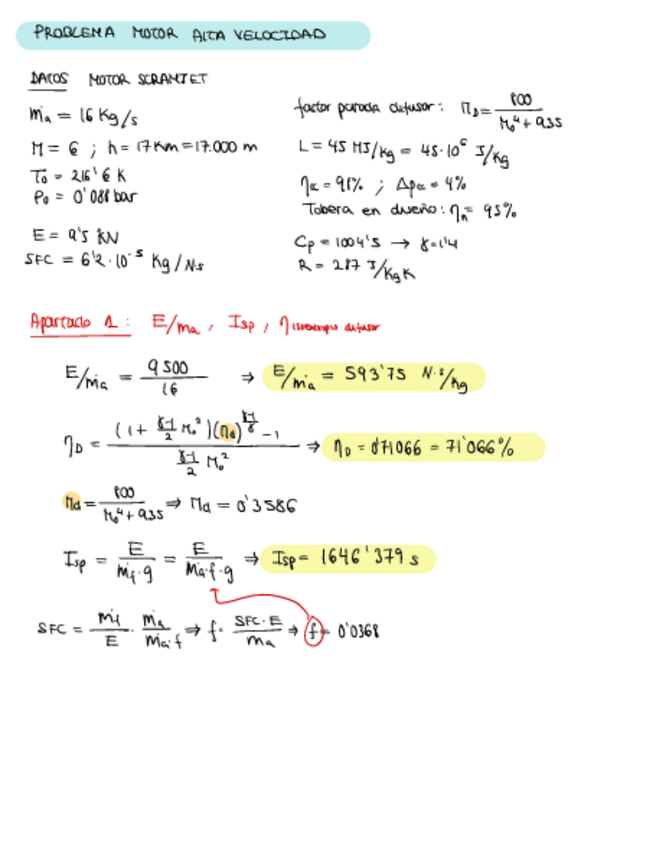 PROBLEMA MOTOR ALTA VELOCIDAD
DATOS MOTOR SCRAMJET
ṁa = 16 Kg/s
M = 6 ; h = 17 Km = 17.000 m
T₀ = 216'6 K
P₀ = 0'088 bar
E = 9'5 kN
SFC = 6'2 · 10⁻⁵ Kg/N·s
factor parada difusor: Π_D = 800 / (M₀⁴ + 935)
L = 45 MJ/Kg = 45·10⁶ J/Kg
η_cc = 91% ; Δp_cc = 4%
Tobera en diseño: η_n = 95%
Cp = 1004'5 → γ = 1'4
R = 287 J/Kg K
Apartado 1: E/ṁa , Isp , η isoentropico difusor
E/ṁa = 9500 / 16 ⇒ E/ṁa = 593'75 N·s/Kg
η_D = ((1 + (γ-1)/2 M₀²)(Π_d)^((γ-1)/γ) - 1) / ((γ-1)/2 M₀²) ⇒ η_D = 0'71066 = 71'066%
Π_d = 800 / (M₀⁴ + 935) ⇒ Π_d = 0'3586
Isp = E / (ṁf·g) = E / (ṁa·f·g) ⇒ Isp = 1646'379 s
SFC = ṁf / E · ṁa / (ṁa·f) ⇒ f = SFC·E / ṁa ⇒ f = 0'0368